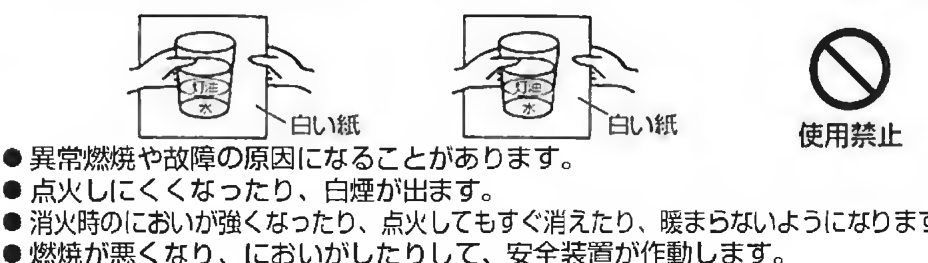 灯油
水
白い紙
灯油
水
白い紙
使用禁止
● 異常燃焼や故障の原因になることがあります。
● 点火しにくくなったり、白煙が出ます。
● 消火時のにおいが強くなったり、点火してもすぐ消えたり、暖まらないようになります
● 燃焼が悪くなり、においがしたりして、安全装置が作動します。